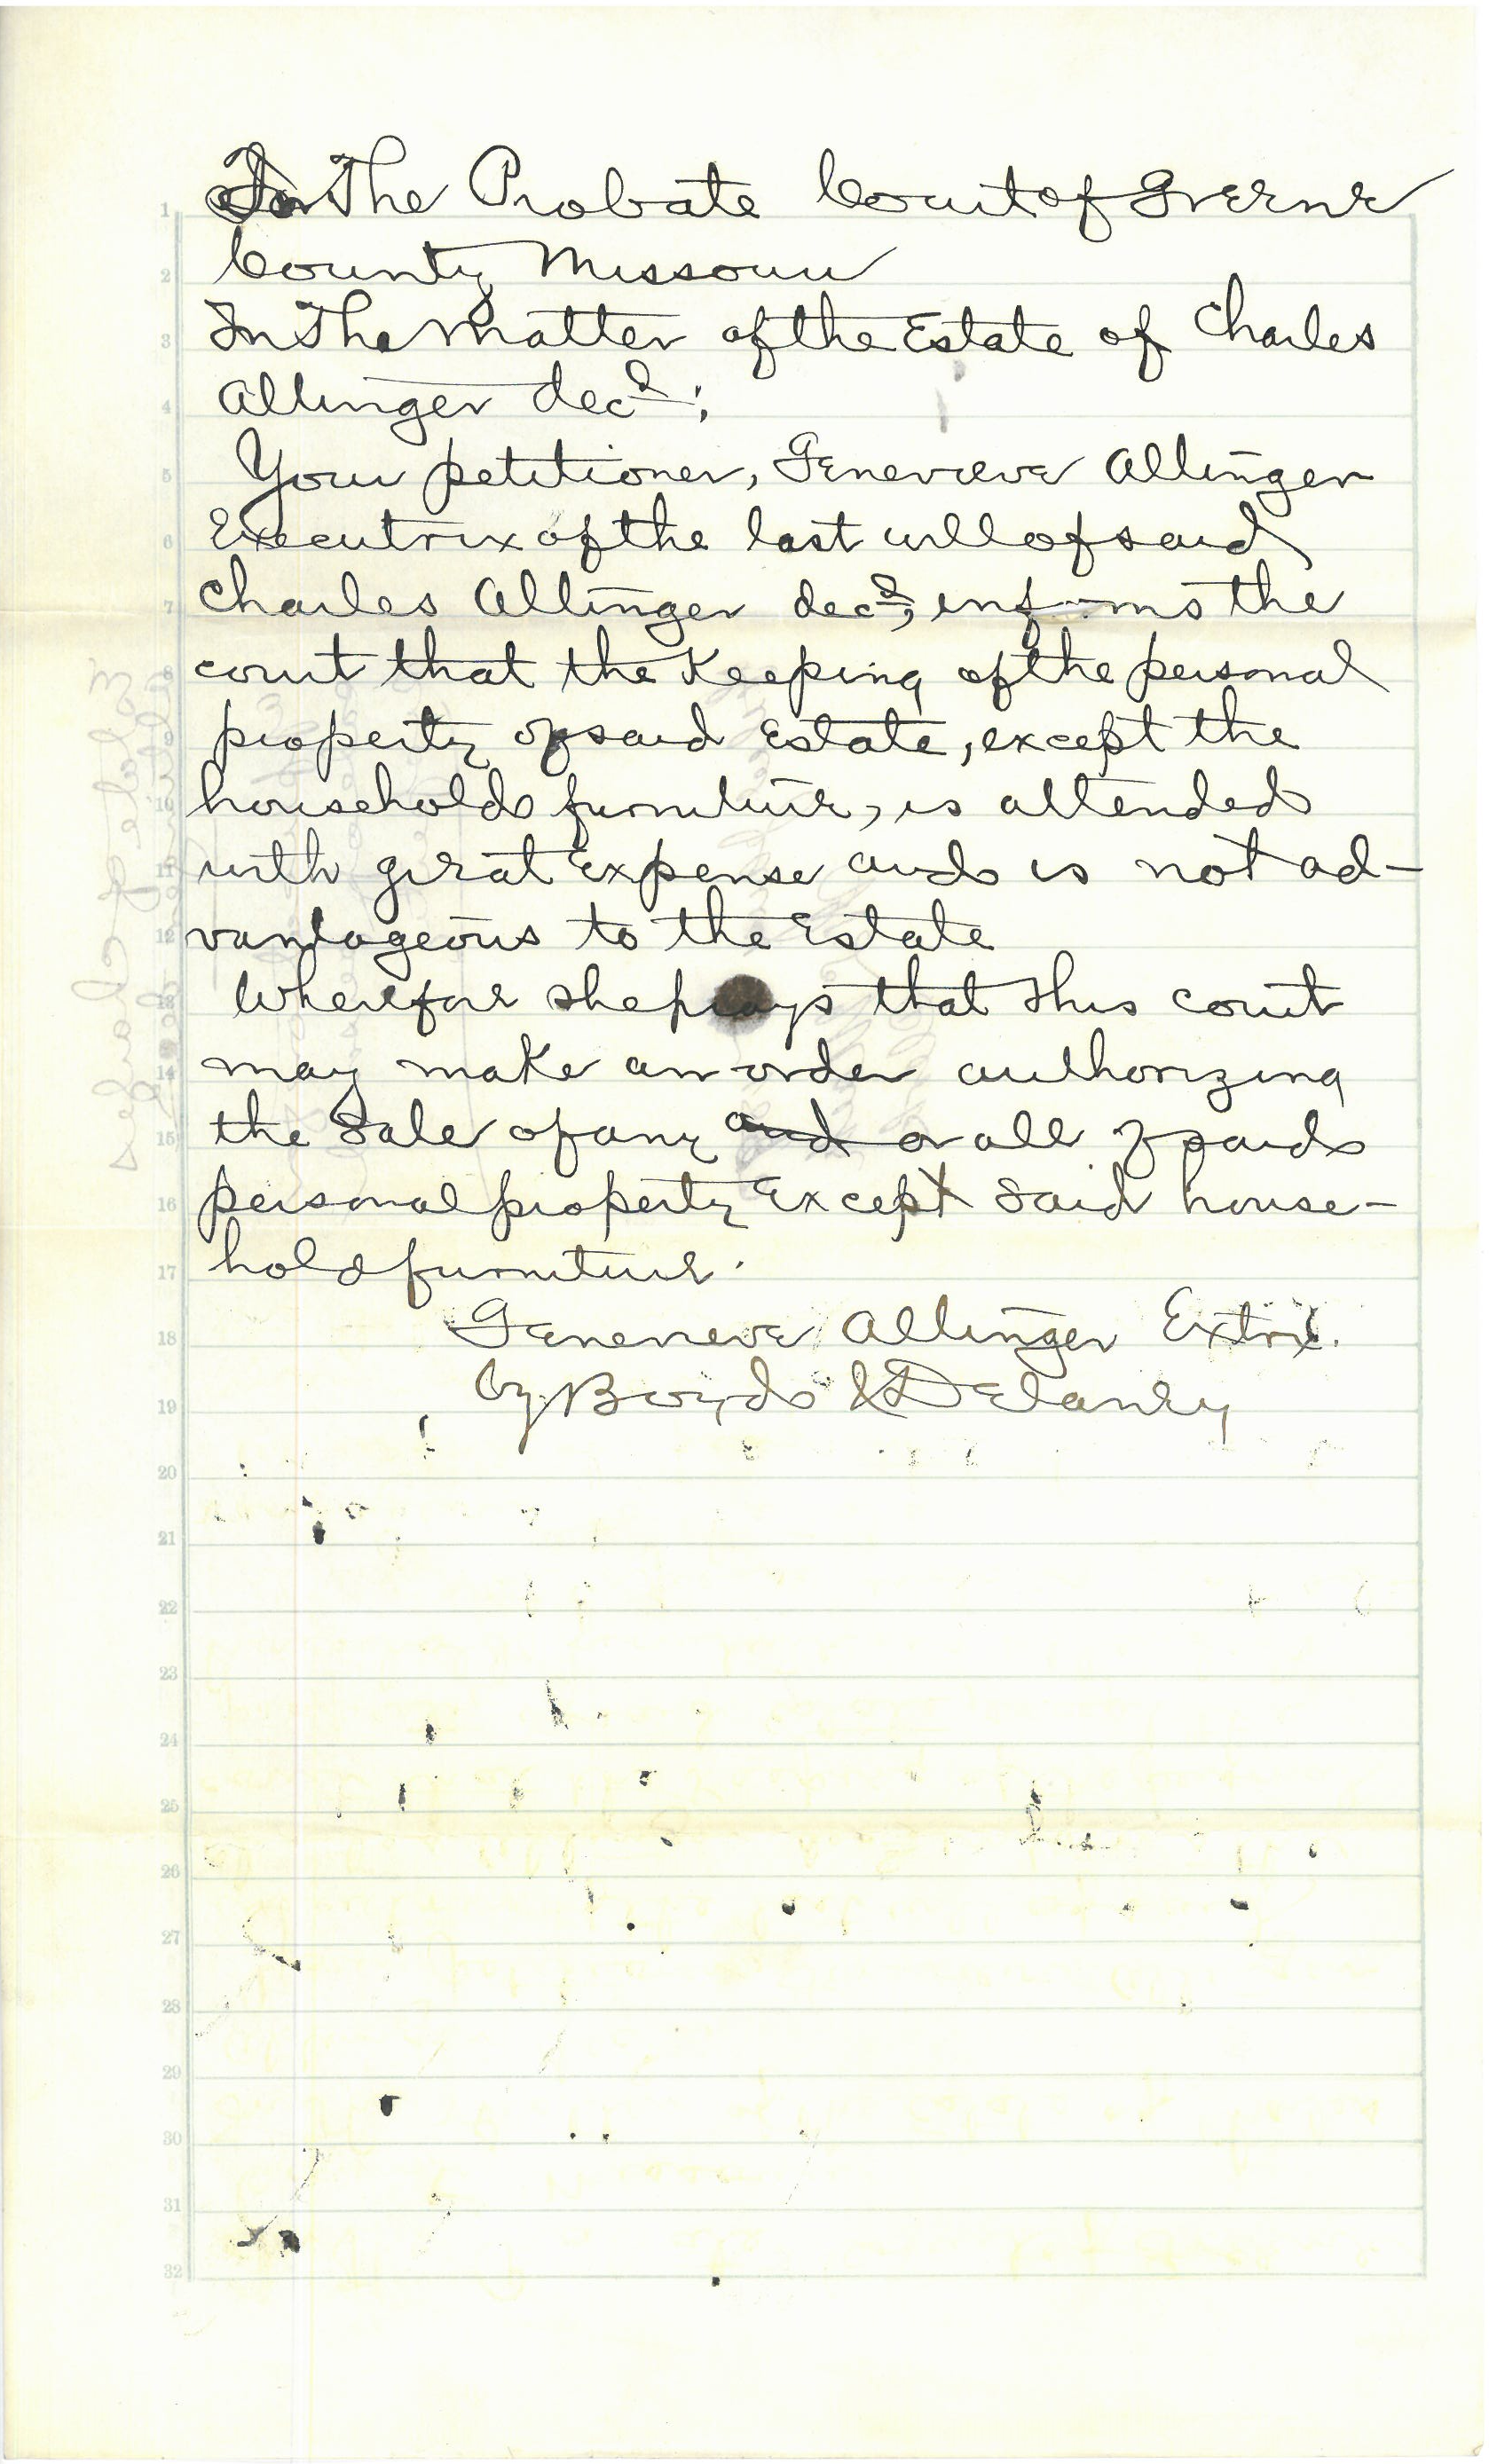 In The Probate Court of Greene
County Missouri
In The Matter of the Estate of Charles
Allinger decd;
Your petitioner, Genevieve Allinger
Executrix of the last will of said
Charles Allinger decd, informs the
court that the keeping of the personal
property of said Estate, except the
household furniture, is attended
with great expense and is not ad-
vantageous to the Estate
Wherefore she prays that this court
may make an order authorizing
the sale of any and or all of said
personal property except said house-
hold furniture.
Genevieve Allinger Extrx.
by Boyds & Delaney
1
2
3
4
5
6
7
8
9
10
11
12
13
14
15
16
17
18
19
20
21
22
23
24
25
26
27
28
29
30
31
32